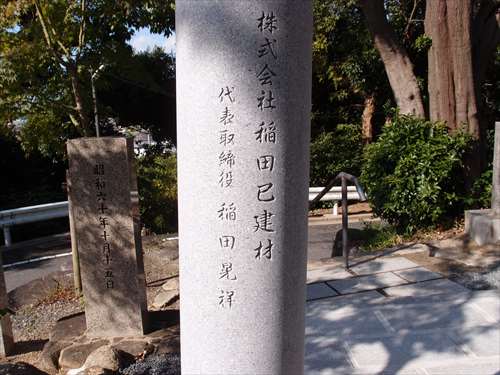 株式会社稲田巳建材
代表取締役 稲田晃祥
昭和六十年十月十五日